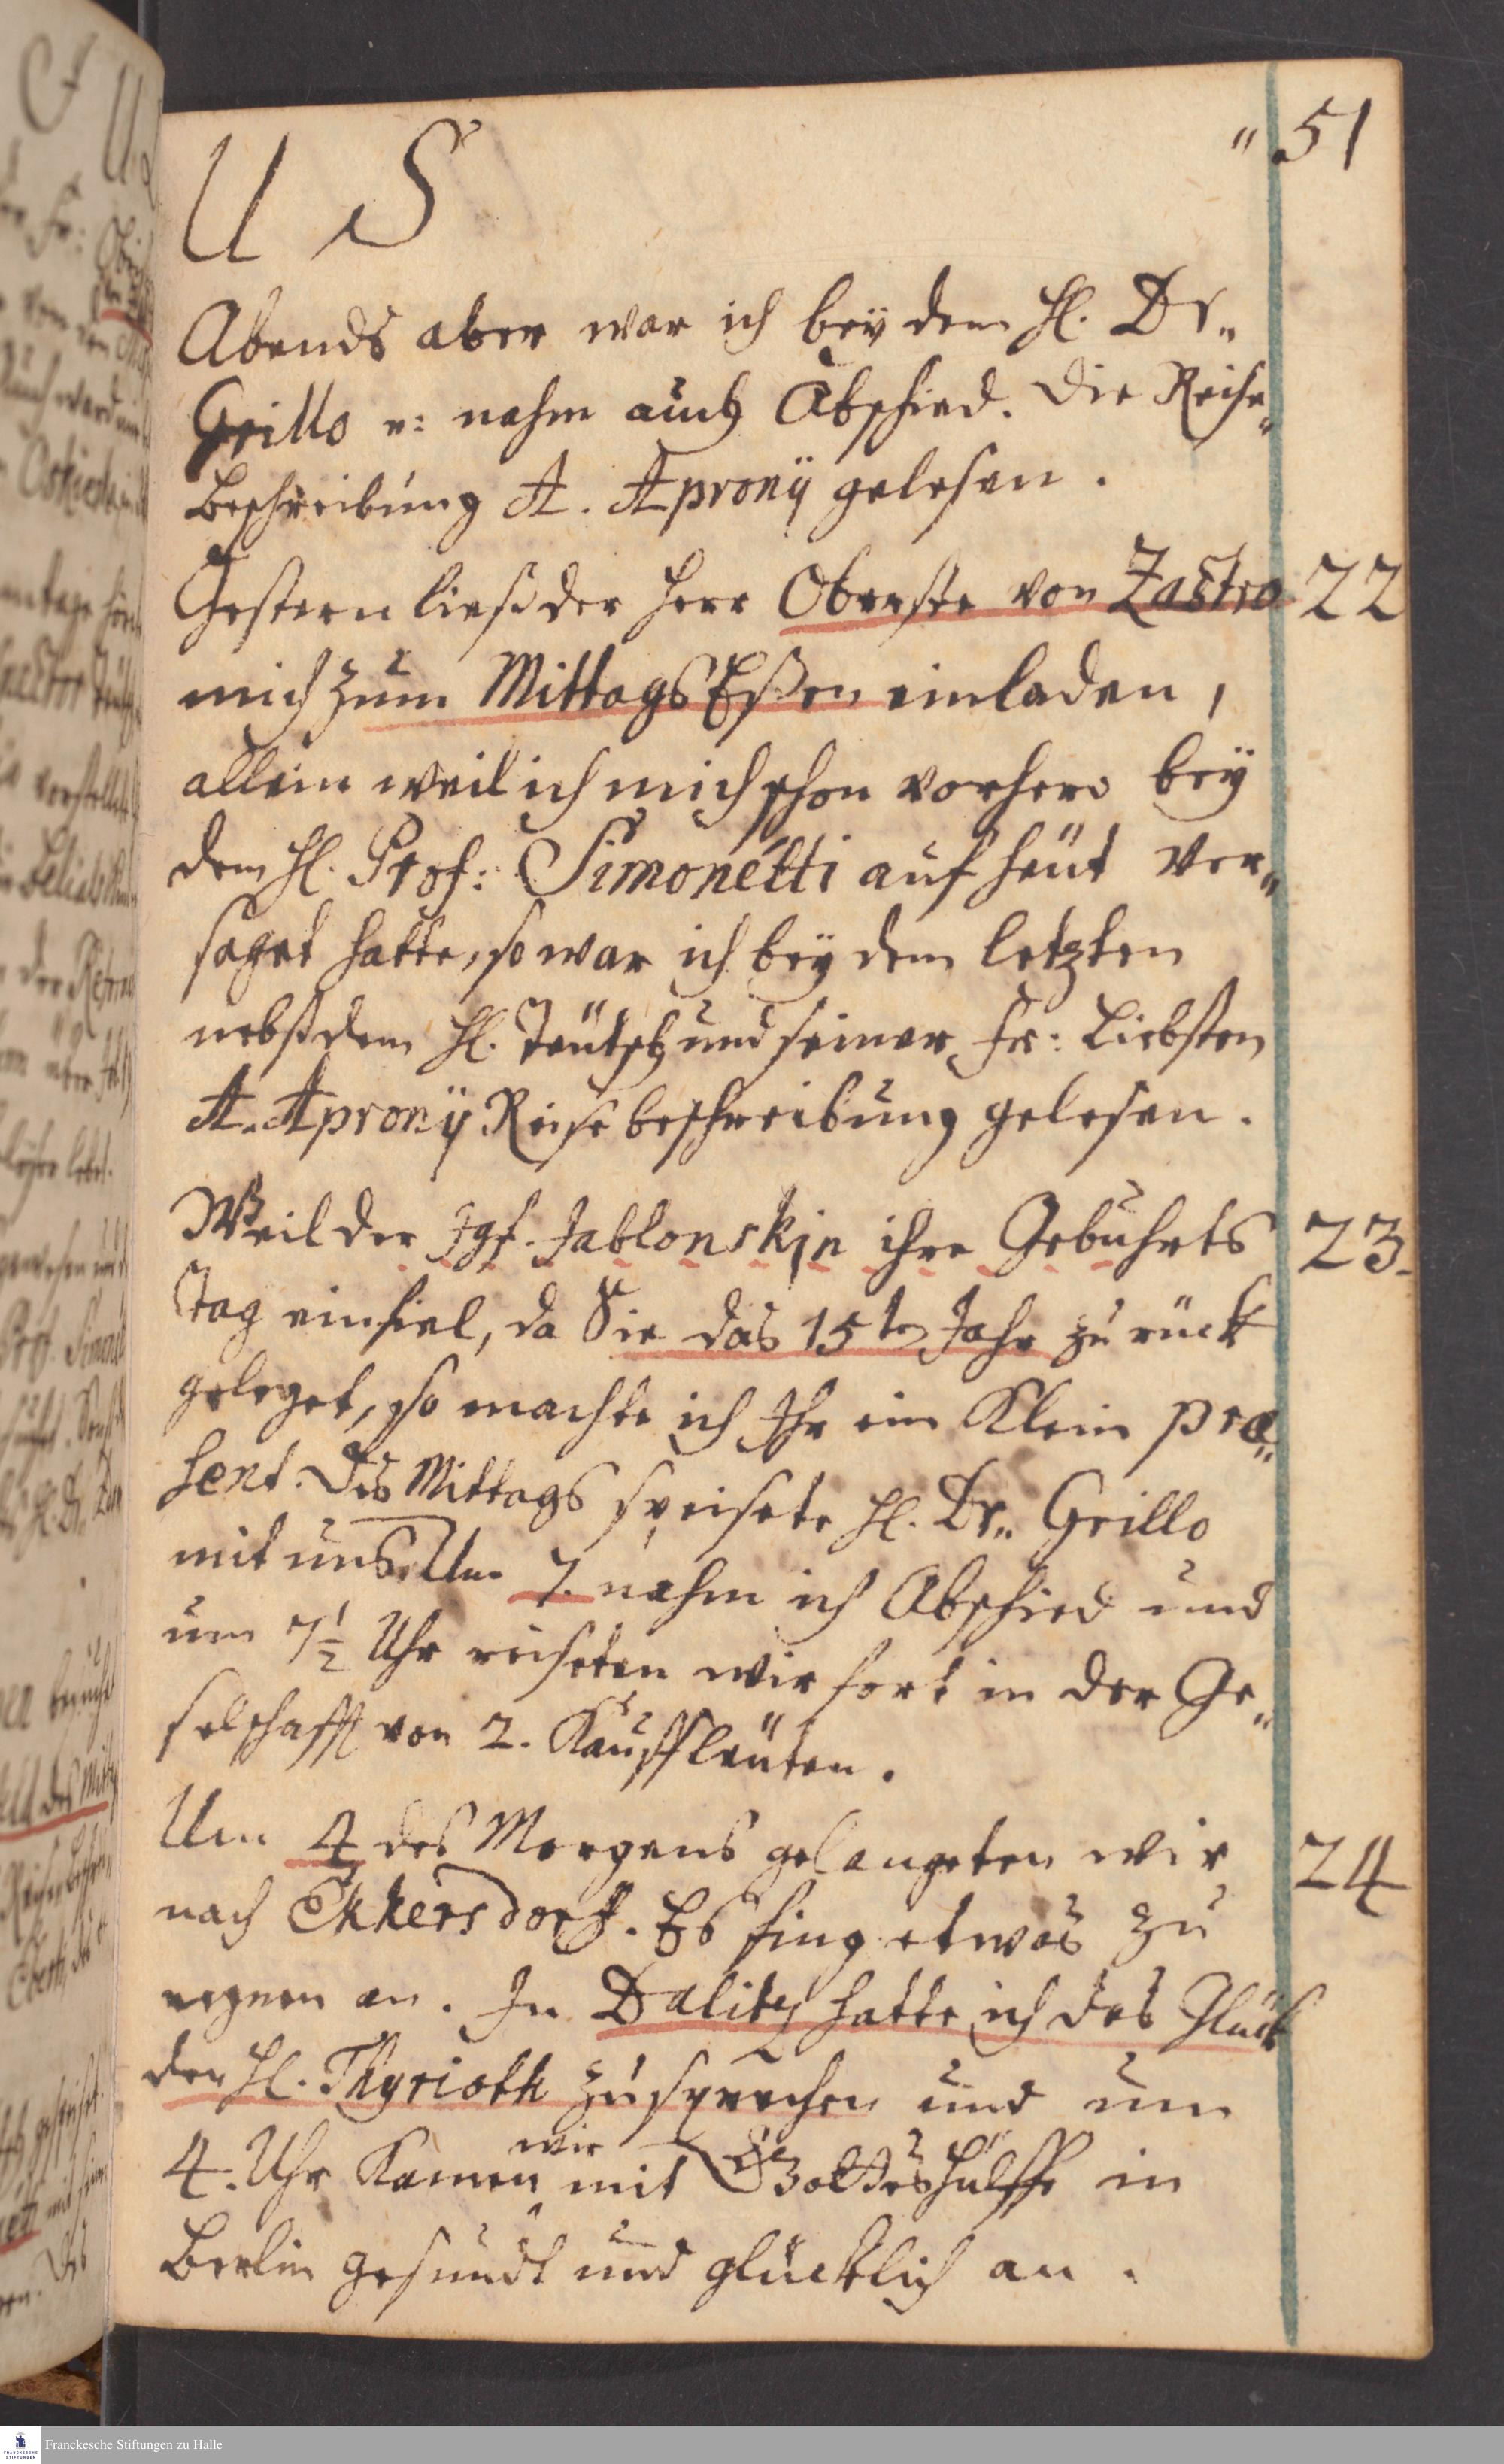 " 51
U S
Abends aber war ich bey dem H. Dr„
Grillo u: nahm auch Abschied. Die Reise„
Beschreibung A. Apronÿ gelesen.
Gestern ließ der Herr Oberste von Zastro 22
mich zum Mittags Eßen einladen,
allein weil ich mich schon vorhero beÿ
dem H. Prof: Simonétti auf heüt ver„
saget hatte, so war ich beÿ dem letzten
nebst dem H. Teütsch und seiner Fr: Liebsten
A. Apronÿ Reise beschreibung gelesen.
Weil der Jgf. Jablonskin ihre Gebuhrts 23.
Tag einfiel, da Sie das 15te Jahr zurück
geleget, so machte ich Ihr ein Klein præ„
sent. Des Mittags speisete H. Dr„ Grillo
mit uns. Um 7. nahm ich Abschied und
um 7½ Uhr reiseten wir fort in der Ge„
selschafft von 2. Kauffleüten.
Um 4 des Morgens gelangeten wir 24
nach Ekkersdorf. Es fing etwas zu
regnen an. In Dalitz hatte ich das Glück
den H. Thyrioth zu sprechen und um
4. Uhr Kamen wir mit Gottes hülffe in
Berlin gesundt und glücklich an.
Franckesche Stiftungen zu Halle